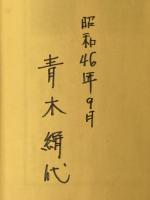 昭和46年9月
青木絹代